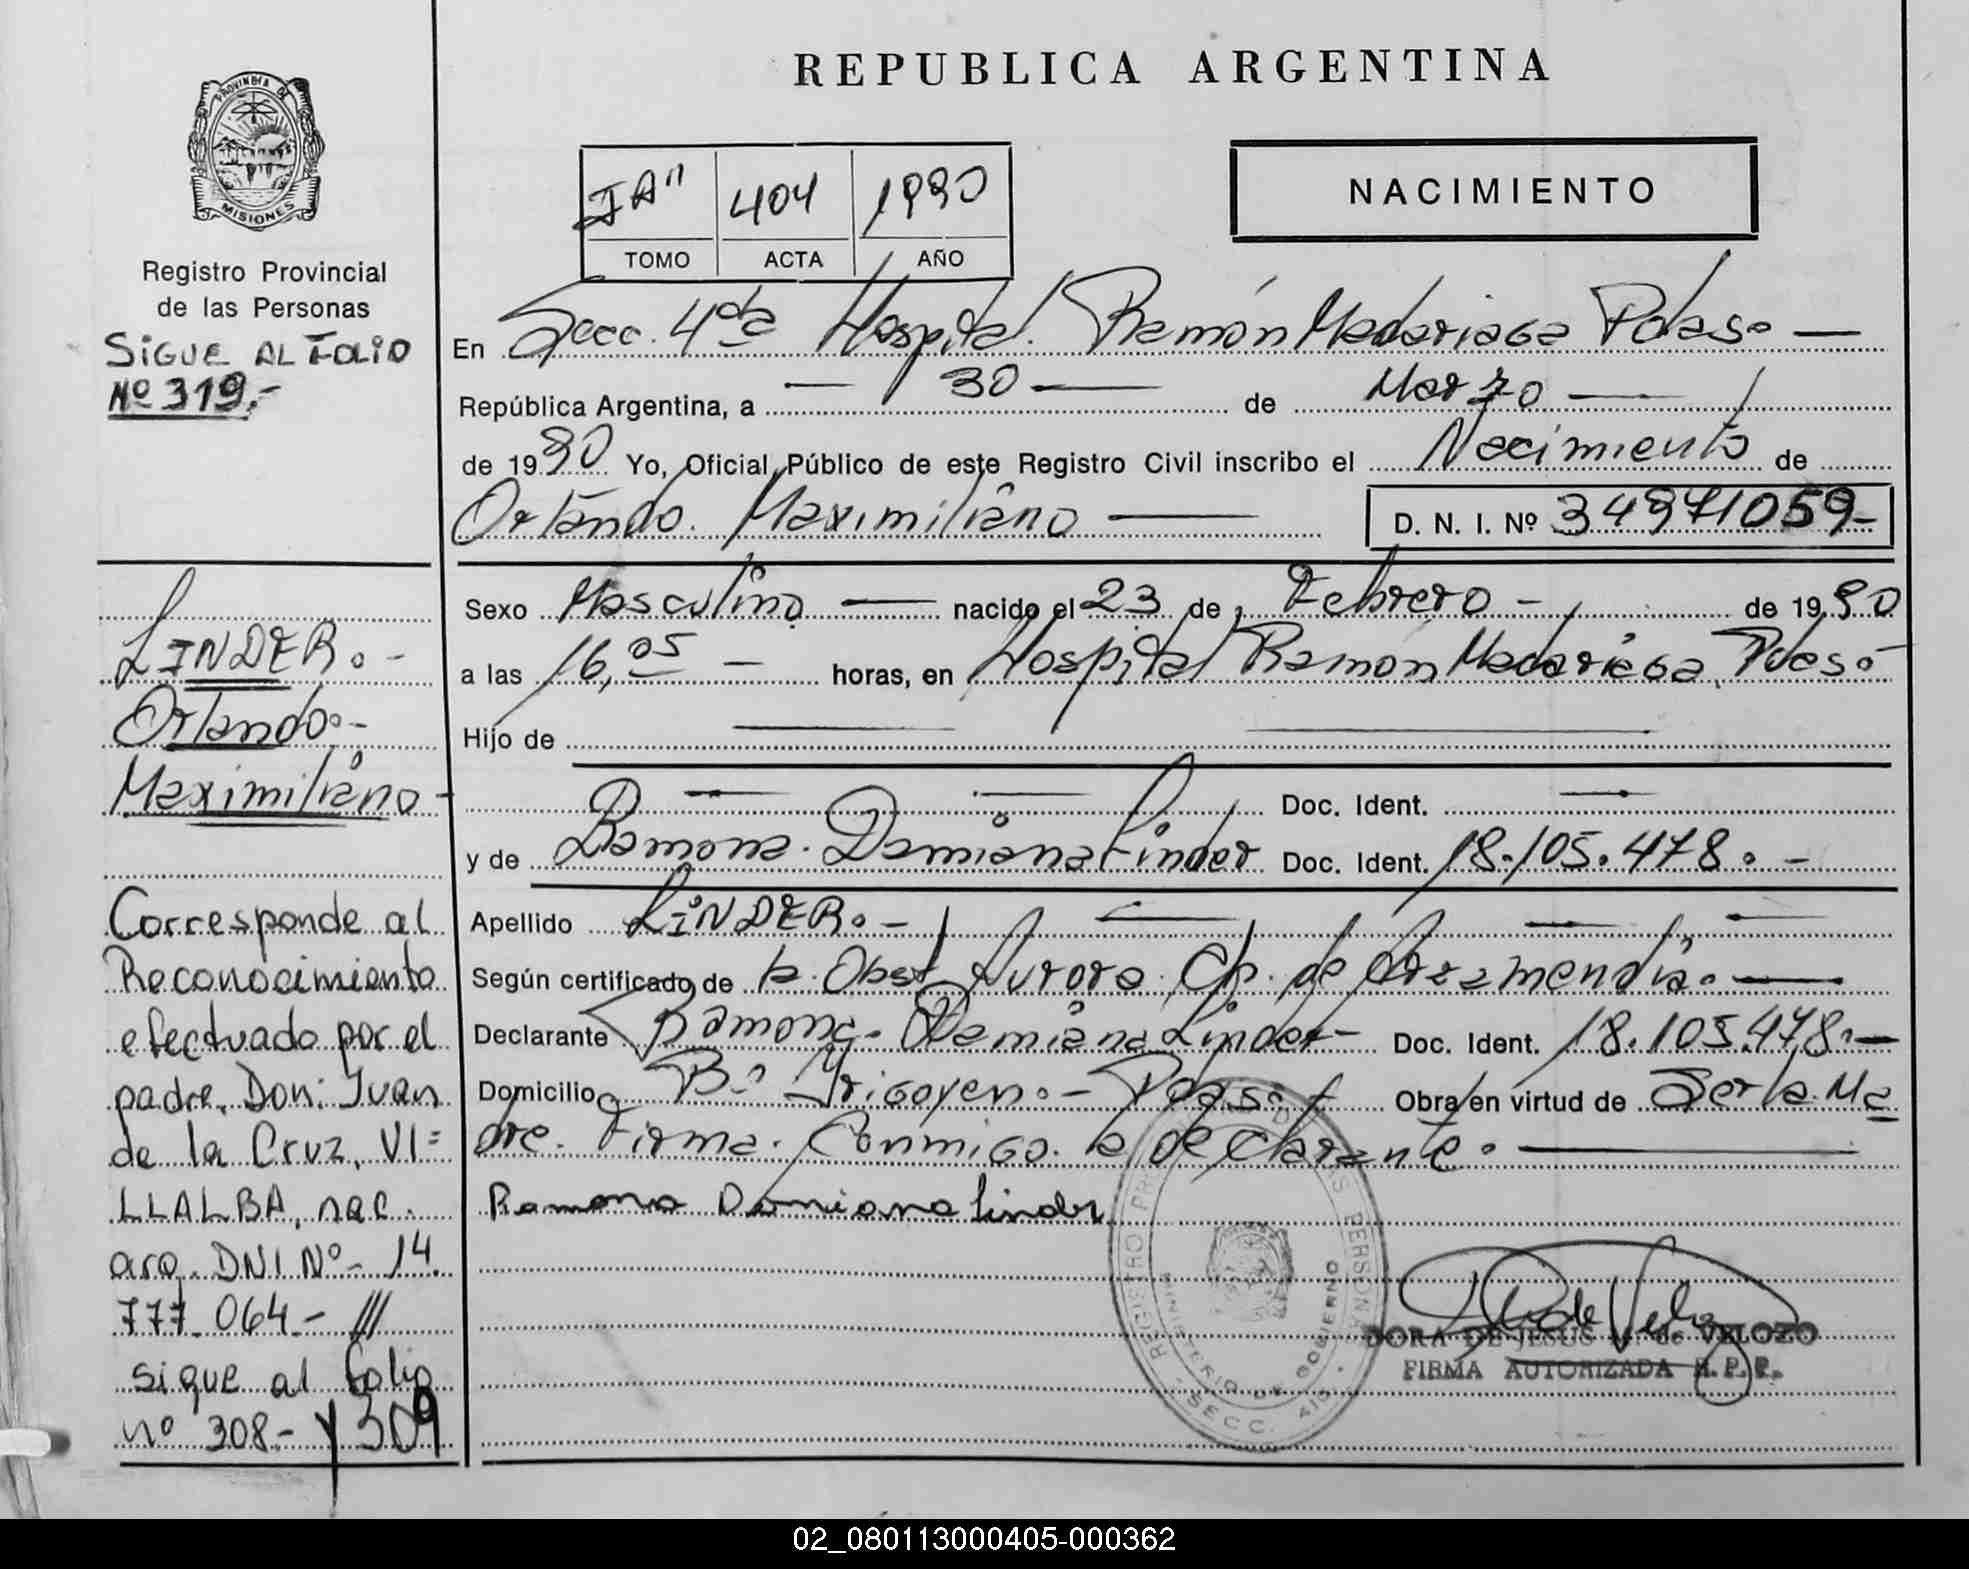 REPUBLICA ARGENTINA
PROVINCIA DE
MISIONES
Registro Provincial
de las Personas
SIGUE AL FOLIO
Nº 319.-
IA" 404 1990
TOMO ACTA AÑO
NACIMIENTO
En Secc. 4ta Hospital Ramón Madariaga Pdas. —
República Argentina, a — 30 — de Marzo —
de 1990 Yo, Oficial Público de este Registro Civil inscribo el Nacimiento de
Orlando Maximiliano — D. N. I. Nº 34971059-
Sexo Masculino — nacido el 23 de Febrero - de 1990
a las 16,05 — horas, en Hospital Ramón Madariaga, Pdas.-
Hijo de — —
— — Doc. Ident. —
y de Ramona Damiana Linder Doc. Ident. 18.105.478.-
Apellido LINDER.- — — —
Según certificado de la Obst. Aurora Ch. de Arzamendia. —
Declarante Ramona Damiana Linder- Doc. Ident. 18.105.478.—
Domicilio Bº Yrigoyen.- Pdas. Obra en virtud de Ser la Ma
dre. Firma Conmigo la declarante. —
Ramona Damiana Linder
LINDER.-
Orlando.-
Maximiliano-
Corresponde al
Reconocimiento
efectuado por el
padre, Don: Juan
de la Cruz, VI=
LLALBA, nac.
arg. DNI Nº- 14.
777.064.- ///
sigue al folio
nº 308.- y 309
REGISTRO PERSONAS
MINISTERIO DE GOBIERNO
SECC. 4TO
DORA DE JESUS de VELOZO
FIRMA AUTORIZADA R.P.P.
02_080113000405-000362